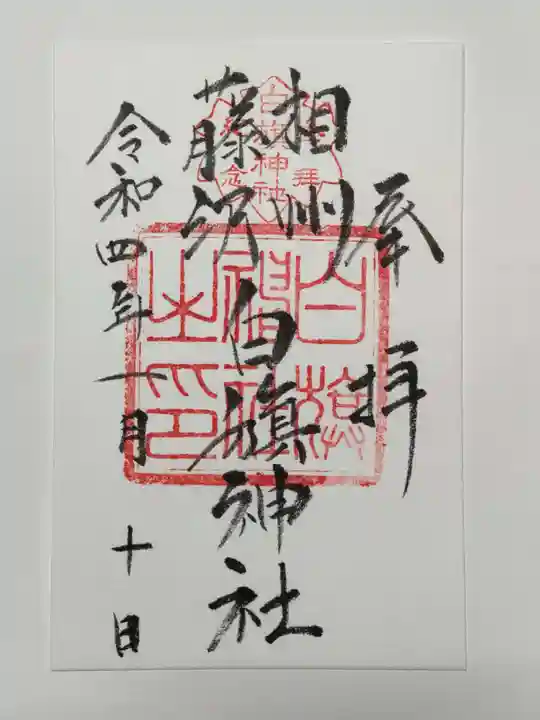 奉拝
相州
藤沢
白旗神社
令和四年一月
十日
白旗神社
拝
念
白旗
神社
之印